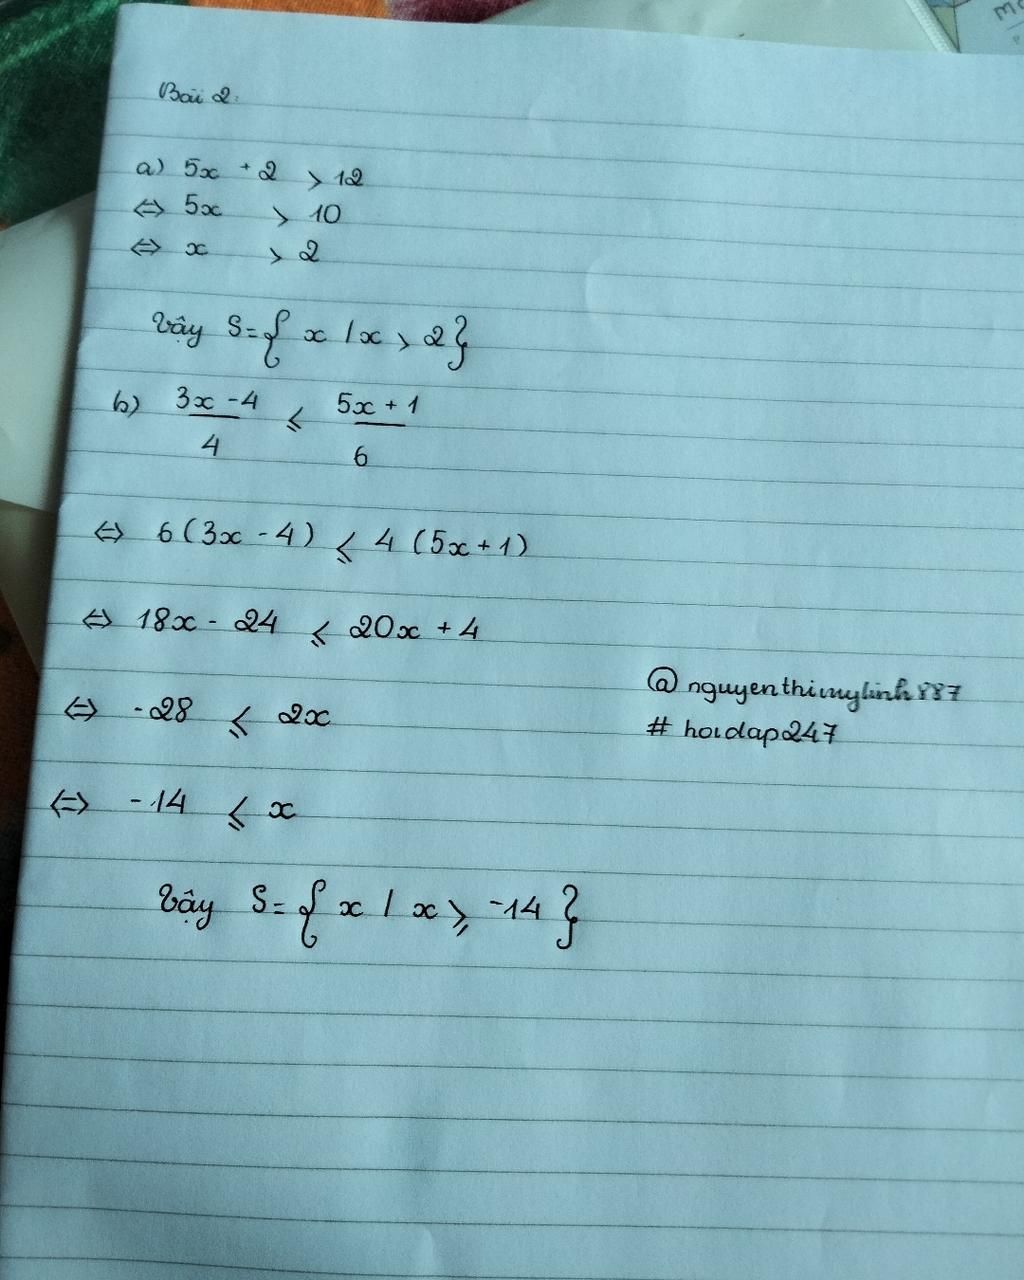 Bài 2:
a) 5x + 2 > 12
⇔ 5x > 10
⇔ x > 2
Vậy S = { x / x > 2 }
b) (3x - 4)/4 ≤ (5x + 1)/6
⇔ 6(3x - 4) ≤ 4(5x + 1)
⇔ 18x - 24 ≤ 20x + 4
⇔ -28 ≤ 2x
⇔ -14 ≤ x
Vậy S = { x / x ≥ -14 }
@nguyenthimylinh887
# hoidap247